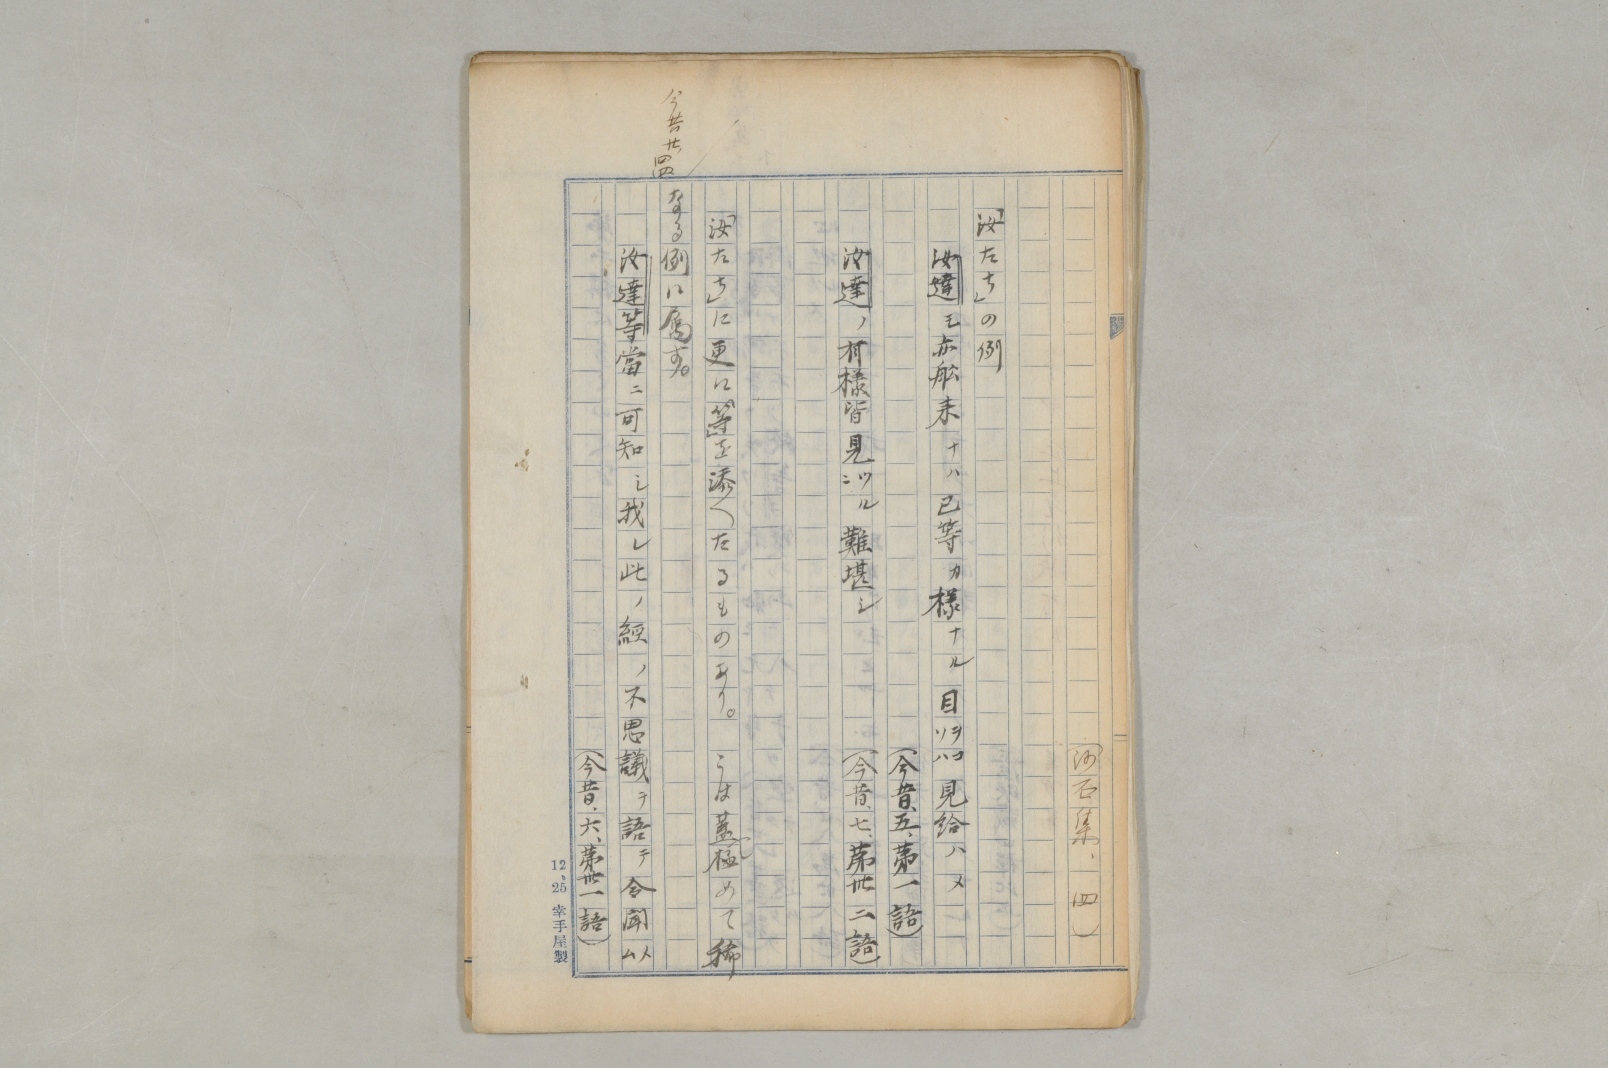 (沙石集、四)
「汝たち」の例
汝達モ亦舩来ナハ己等カ様ナル目ヲコソハ見給ハメ
(今昔、五、第一語)
汝達ノ有様皆見ツルニ難堪シ
(今昔、七、第卅二語)
「汝たち」に更に「等」を添へたるものあり。こは蓋し極めて稀
なる例に属す。
今昔廿四
汝達等當ニ可知シ我レ此ノ經ノ不思議ヲ語テ令聞ム以
(今昔、六、第卅一語)
12、25 幸手屋製